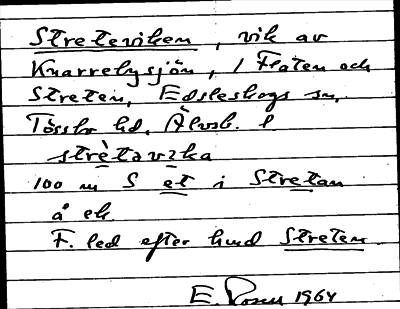 Streteviken, vik av
Knarrebysjön, i Flaten och
Streten, Edsleskogs sn,
Tössbo hd, Älvsb. l
strètavika
100 m S et i Stretan
å ek
F. led efter hmd Streten.
E. Rosen 1964